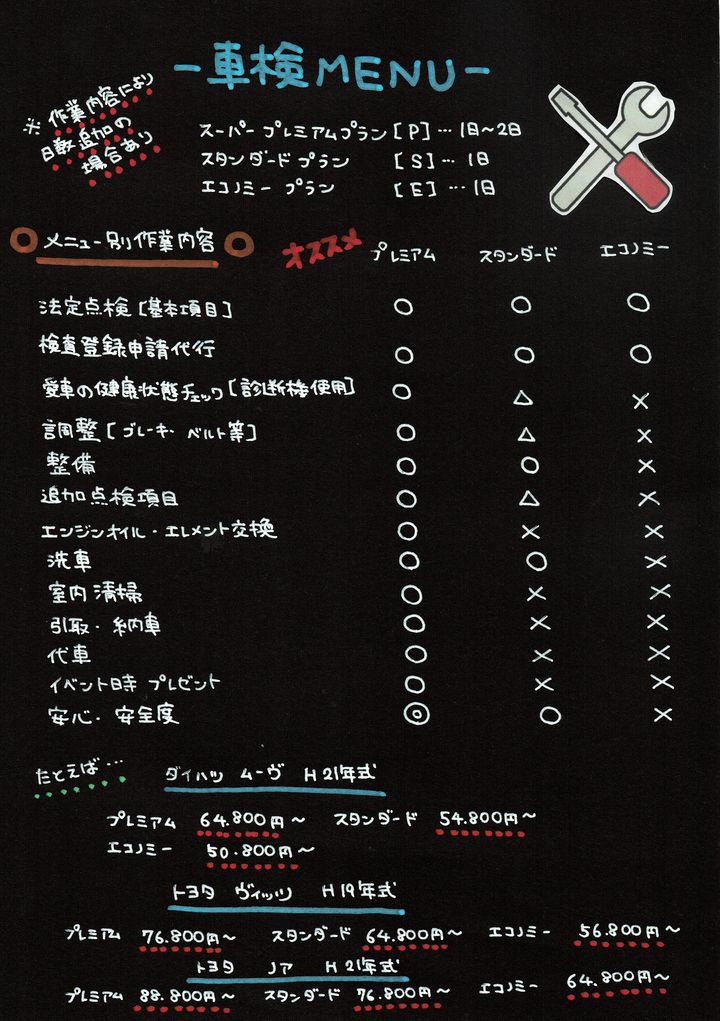 －車検MENU－
※作業内容により
日数追加の
場合あり
スーパープレミアムプラン[P]…1日～2日
スタンダードプラン [S]…1日
エコノミープラン [E]…1日
○メニュー別作業内容○
オススメ
プレミアム スタンダード エコノミー
法定点検[基本項目] ○ ○ ○
検査登録申請代行 ○ ○ ○
愛車の健康状態チェック[診断機使用] ○ △ ×
調整[ブレーキ・ベルト等] ○ △ ×
整備 ○ ○ ×
追加点検項目 ○ △ ×
エンジンオイル・エレメント交換 ○ × ×
洗車 ○ ○ ×
室内清掃 ○ × ×
引取・納車 ○ × ×
代車 ○ × ×
イベント時プレゼント ○ × ×
安心・安全度 ◎ ○ ×
たとえば…
ダイハツ ムーヴ H21年式
プレミアム 64.800円～ スタンダード 54.800円～
エコノミー 50.800円～
トヨタ ヴィッツ H19年式
プレミアム 76.800円～ スタンダード 64.800円～ エコノミー 56.800円～
トヨタ ノア H21年式
プレミアム 88.800円～ スタンダード 76.800円～ エコノミー 64.800円～